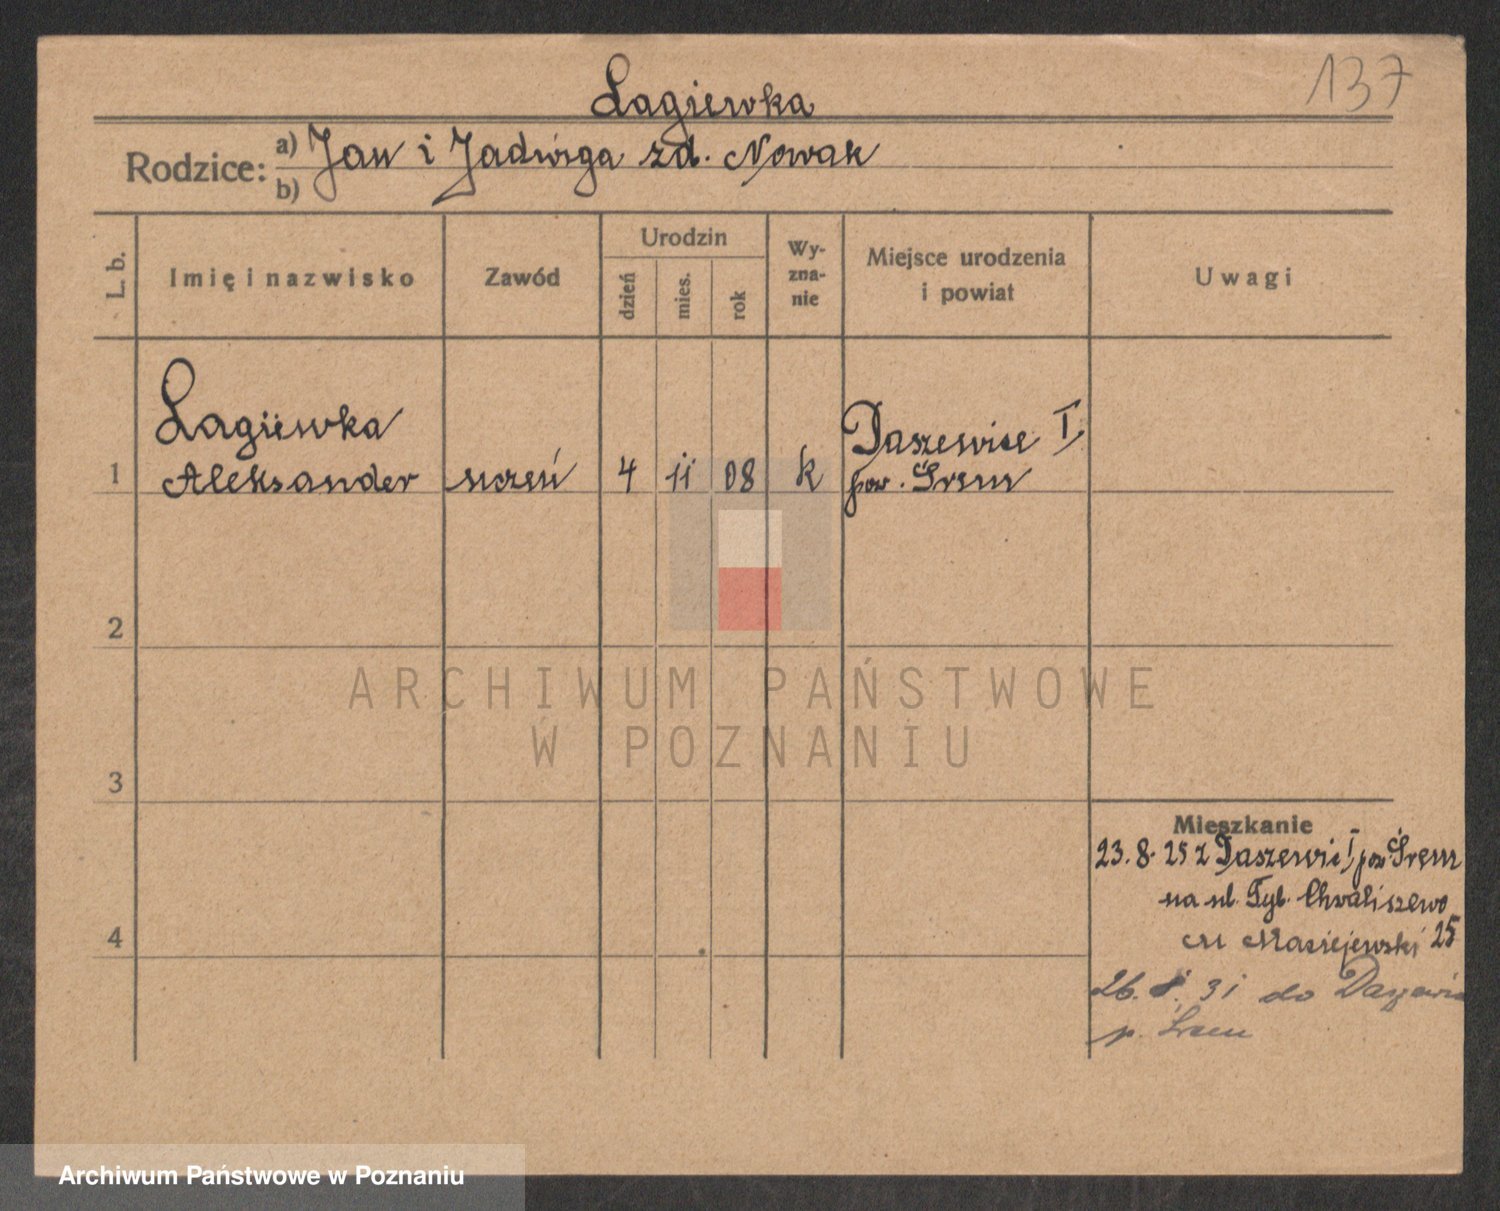 137
Łagiewka
Rodzice: a) Jan i Jadwiga zd. Nowak
b)
L. b. Imię i nazwisko Zawód Urodzin dzień mies. rok Wy-zna-nie Miejsce urodzenia i powiat Uwagi
Łagiewka Daszewice I
1 Aleksander uczeń 4 11 08 k pow. Śrem
2
ARCHIWUM PAŃSTWOWE
W POZNANIU
3
Mieszkanie
23. 8. 25 z Daszewic I, pow Śrem
na ul. Tyl. Chwaliszewo
M Maciejewski 25
26. 31 do Daszewic
p. Śrem
4
Archiwum Państwowe w Poznaniu